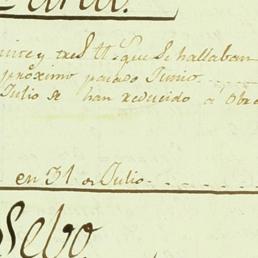 y tres tt que se hallaban
próximo pasado Junio
Julio se han reducido a
en 31 de Julio
Sebo.